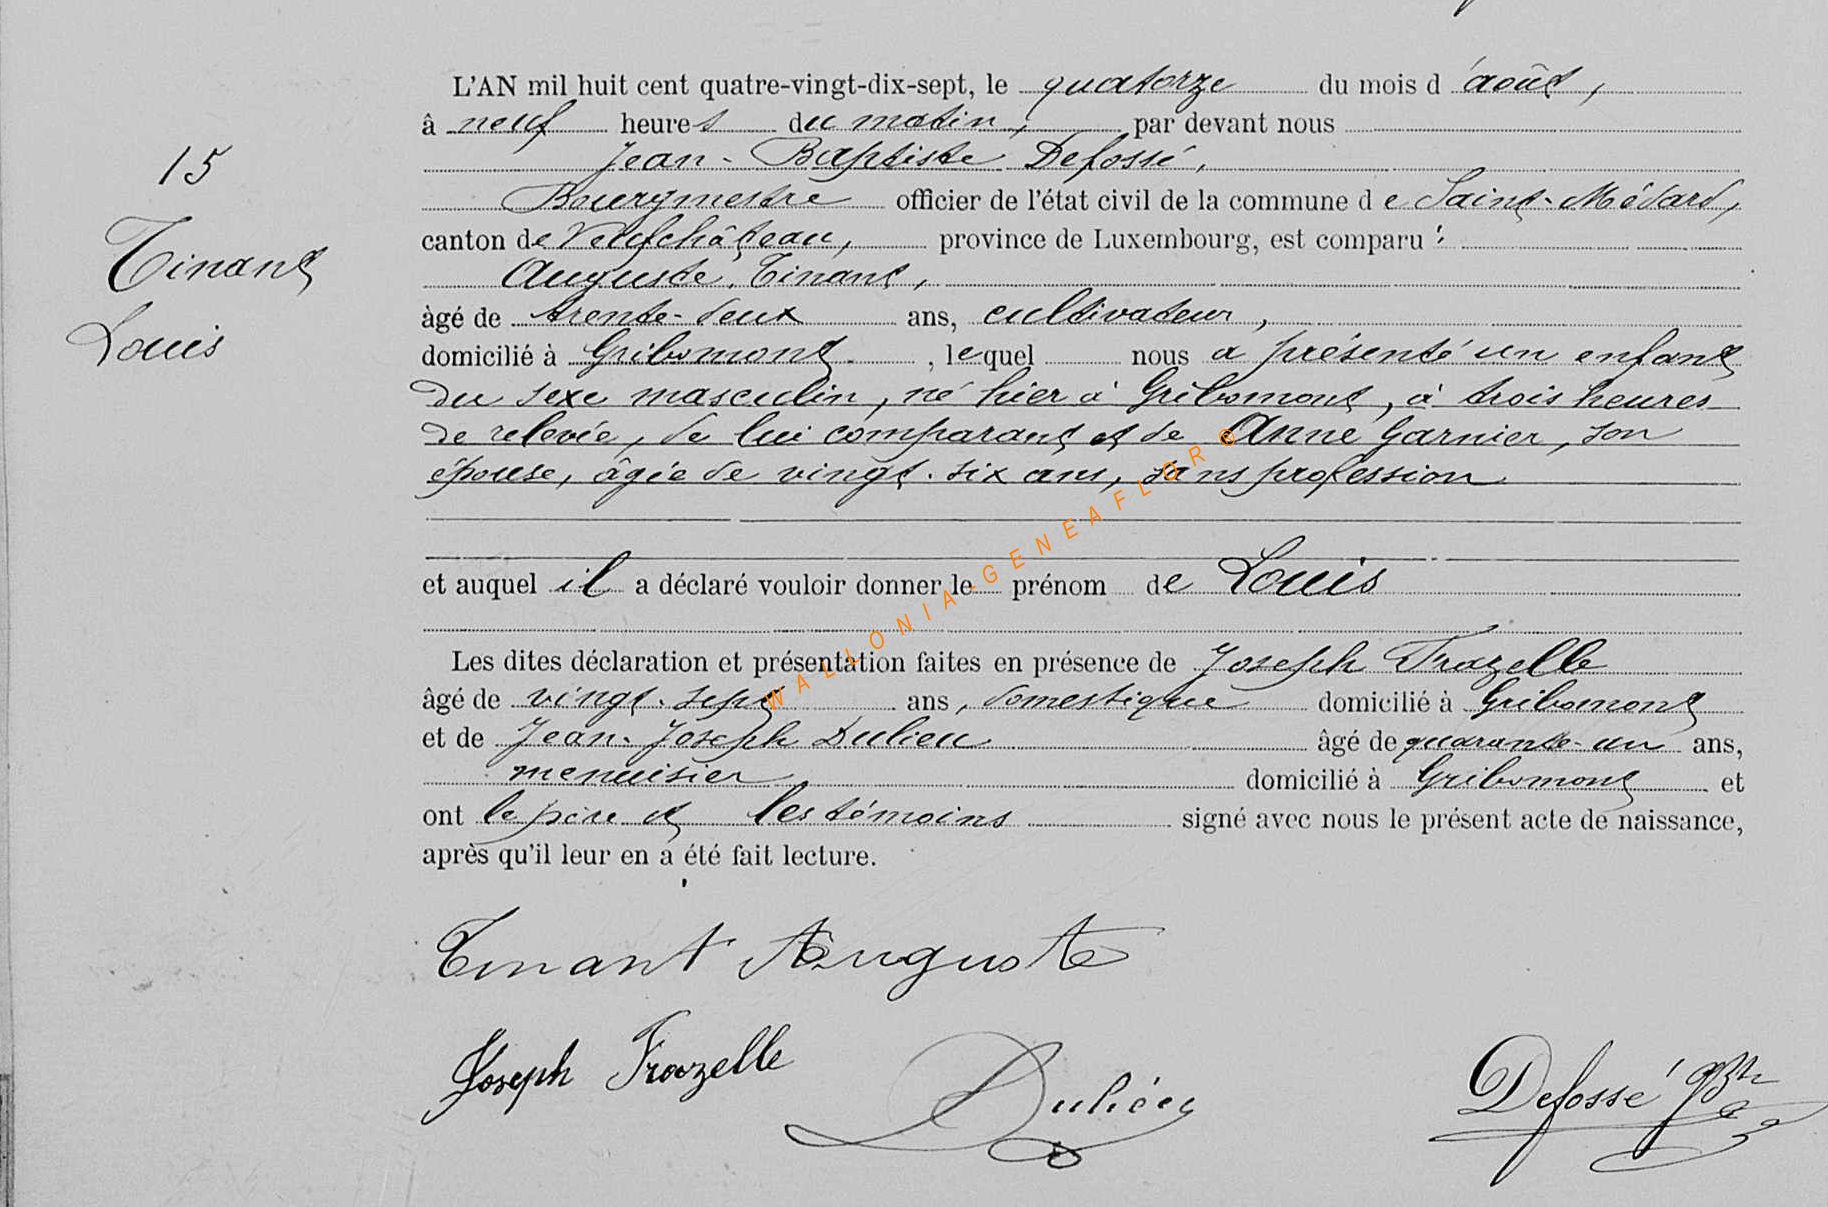 L'AN mil huit cent quatre-vingt-dix-sept, le quatorze du mois d'août,
à neuf heures du matin, par devant nous
Jean-Baptiste Defossé,
Bourgmestre officier de l'état civil de la commune de Saint-Médard,
canton de Neufchâteau, province de Luxembourg, est comparu :
Auguste Tinant,
âgé de trente-deux ans, cultivateur,
domicilié à Gribomont, lequel nous a présenté un enfant
du sexe masculin, né hier à Gribomont, à trois heures
de relevée, de lui comparant et de Anne Garnier, son
épouse, âgée de vingt-six ans, sans profession
et auquel il a déclaré vouloir donner le prénom de Louis
Les dites déclaration et présentation faites en présence de Joseph Frazelle
âgé de vingt-sept ans, domestique domicilié à Gribomont
et de Jean-Joseph Dulieu âgé de quarante-un ans,
menuisier domicilié à Gribomont et
ont le père et les témoins signé avec nous le présent acte de naissance,
après qu'il leur en a été fait lecture.
15
Tinant
Louis
Tinant Auguste
Joseph Frazelle
Dulieu
Defossé JBte
WALLONIA-GENEAFLOR©